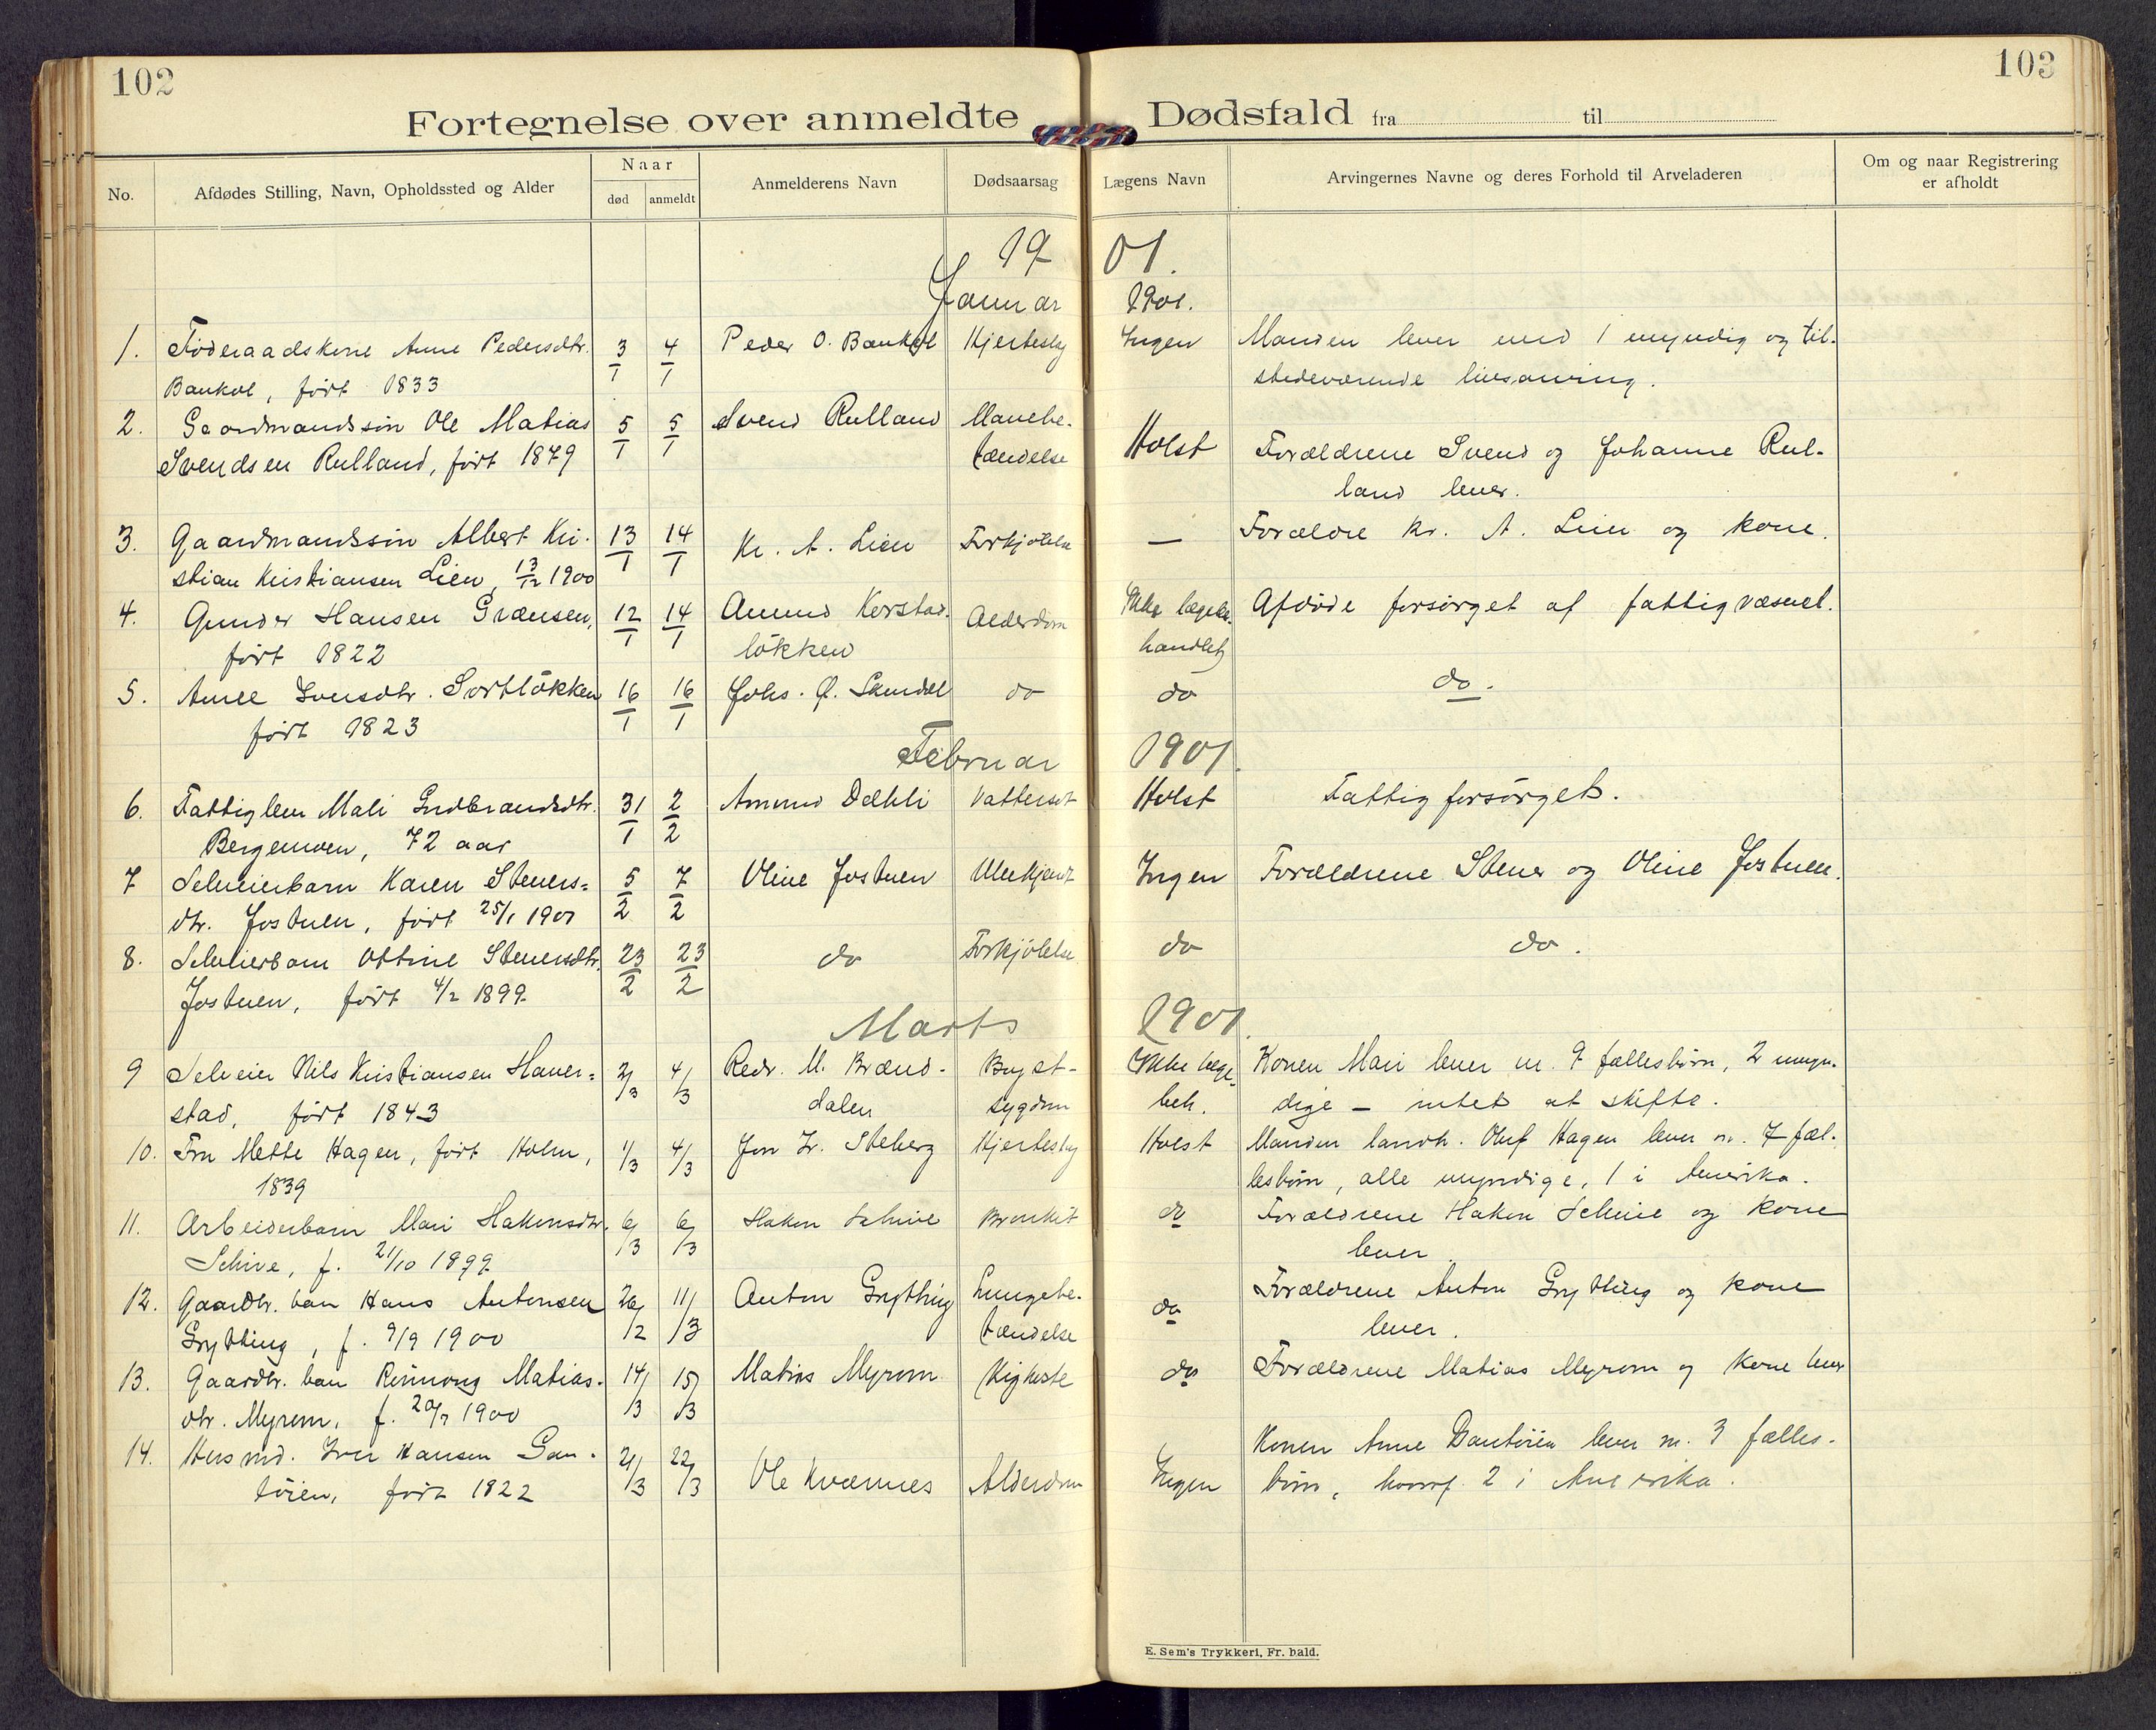 102
103
Fortegnelse over anmeldte Dødsfald fra til
No.
Afdødes Stilling, Navn, Opholdssted og Alder
Naar
død
anmeldt
Anmelderens Navn
Dødsaarsag
Lægens Navn
Arvingernes Navne og deres Forhold til Arveladeren
Om og naar Registrering
er afholdt
19 01.
Januar 1901.
1. Føderaadskone Anne Pedersdtr. 3/1 4/1 Peder O. Bankol Hjertesyg Ingen Manden lever med 1 umyndig og til-
Bankol, født 1833 stedeværende livsarving.
2. Gaardmandssøn Ole Matias 5/1 5/1 Svend Rulland Mavebe-
Svendsen Rulland, født 1879 tændelse Holst Forældrene Svend og Johanne Rul-
land lever.
3. Gaardmandssøn Albert Kri- 13/1 14/1 Kr. A. Lien Forkjølelse — Forældre Kr. A. Lien og kone.
stian Kristiansen Lien, 13/12 1900
4. Gunder Hansen Grænsen, 12/1 14/1 Amund Korstad- Alderdom Ikke lægebe- Afdøde forsørget af fattigvæsnet.
født 1822 løkken handlet
5. Anne Iversdtr. Sortløkken 16/1 16/1 Johs. do do do.
født 1823
Februar 1901.
6. Fattiglem Mali Gudbrandsdtr. 31/1 2/2 Amund Dæhli Vattersot Holst Fattigforsørget.
Bergemoen, 72 aar
7 Selveierbarn Karen Steners- 5/2 7/2 Oline Jostuen Ubekjendt Ingen Forældrene Stener og Oline Jostuen.
dtr. Jostuen, født 25/1 1901
8. Selveierbarn Ottine Stenersdtr. 23/2 23/2 do Forkjølelse do do.
Jostuen, født 4/2 1899
Marts 1901.
9 Selveier Nils Kristiansen Haver- 2/3 4/3 Redr. M. Brænd- Bryst- Ikke læge- Konen Mari lever m. 9 fællesbørn, 2 umyn-
stad, født 1843 dalen sygdom beh. dige — intet at skifte.
10. Fru Mette Hagen, født Holm, 1/3 4/3 Jon I. Steberg Hjertesyg Holst Manden landh. Oluf Hagen lever m. 7 fæl-
1839 lesbørn, alle myndige, 1 i Amerika.
11. Arbeiderbarn Mari Hakensdtr. 6/3 6/3 Haken Schive Bronkit do Forældrene Haken Schive og kone
Schive, f. 21/10 1899 lever.
12. Gaardbr. barn Hans Antonsen 26/2 11/3 Anton Grytting Lungebe- do Forældrene Anton Grytting og kone
Grytting, f. 9/9 1900 tændelse lever.
13. Gaardbr. barn Matias- 14/3 15/3 Matias Myrom Kighoste do Forældrene Matias Myrom og kone lever
dtr. Myrom, f. 20/7 1900
14. Husmd. Iver Hansen Gan- 21/3 22/3 Ole Kværnnes Alderdom Ingen Konen Anne lever m. 3 fælles-
tøien, født 1822 børn, hvoraf 2 i Amerika.
E. Sem's Trykkeri, Fr. hald.